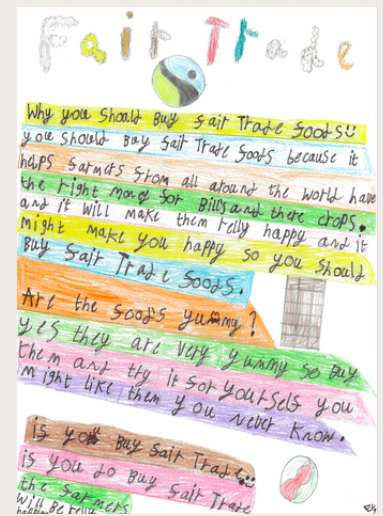 Fair Trade
Why you should buy fair Trade foods
you should buy fair Trade foods because it
helps farmers from all around the world have
the right mony for Bills and there crops.
and it will make them relly happy and it
might make you happy so you should
Buy fair Trade foods.
Are the foods yummy?
yes they are very yummy so Buy
them and try it for yourself you
might like them you never know.
if you Buy fair Trade
if you do Buy fair Trade
the farmers
will Be relly
happy